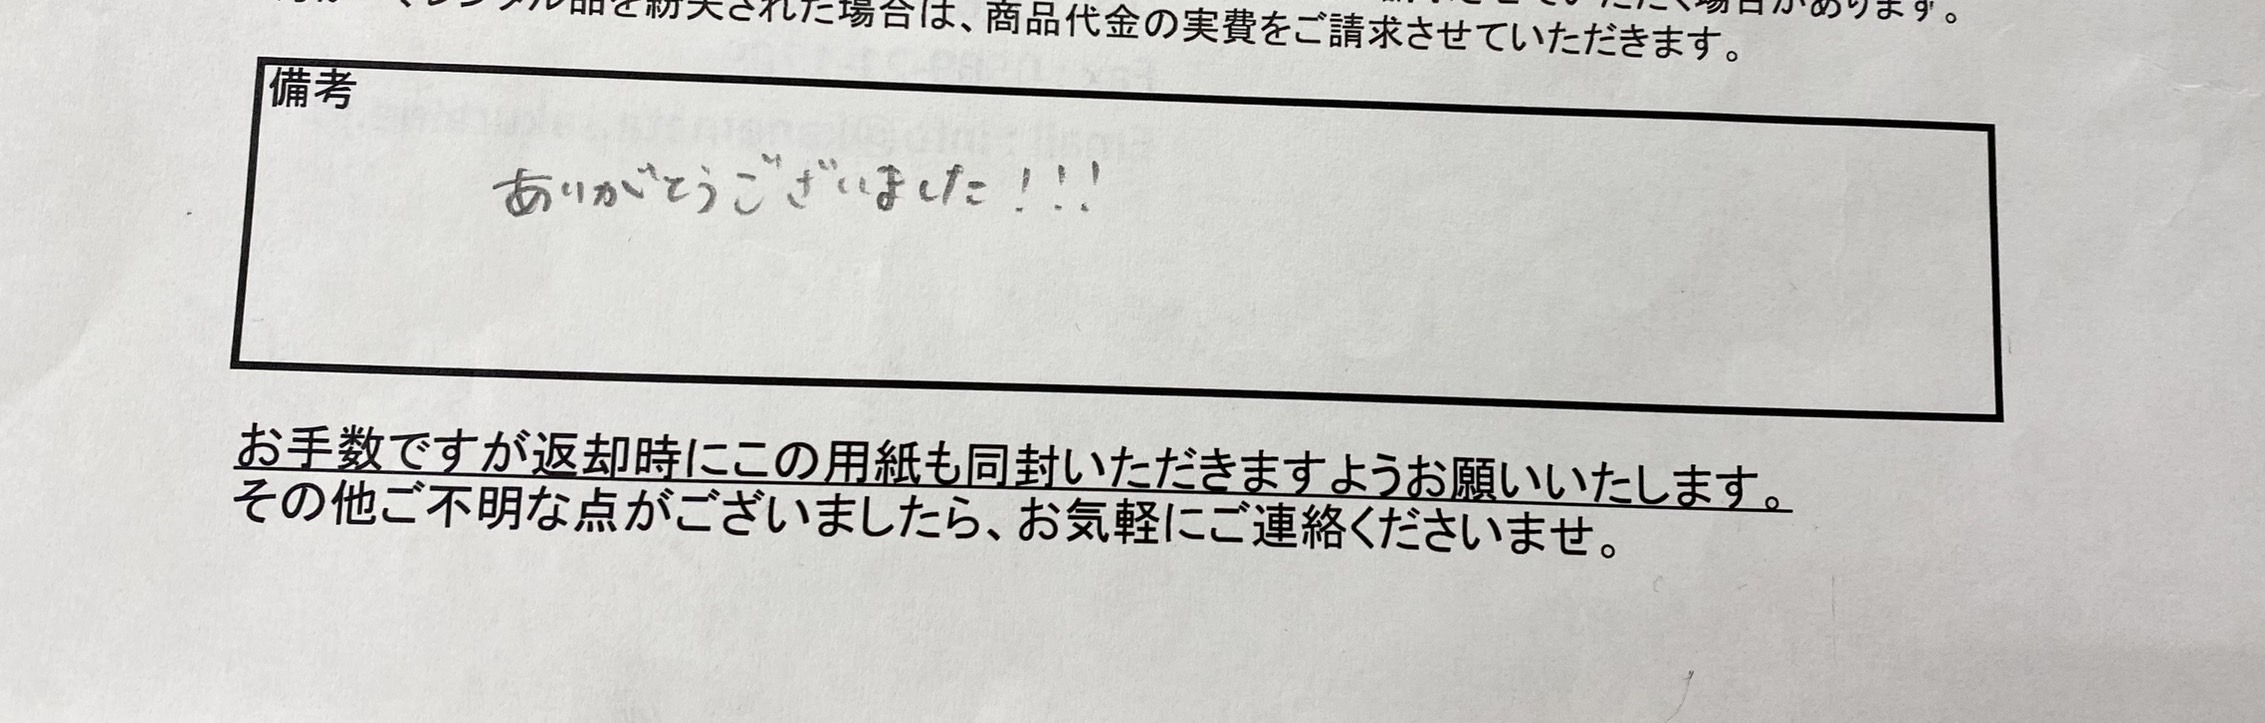 レンタル品を紛失された場合は、商品代金の実費をご請求させていただきます。
備考
ありがとうございました!!!
お手数ですが返却時にこの用紙も同封いただきますようお願いいたします。
その他ご不明な点がございましたら、お気軽にご連絡くださいませ。